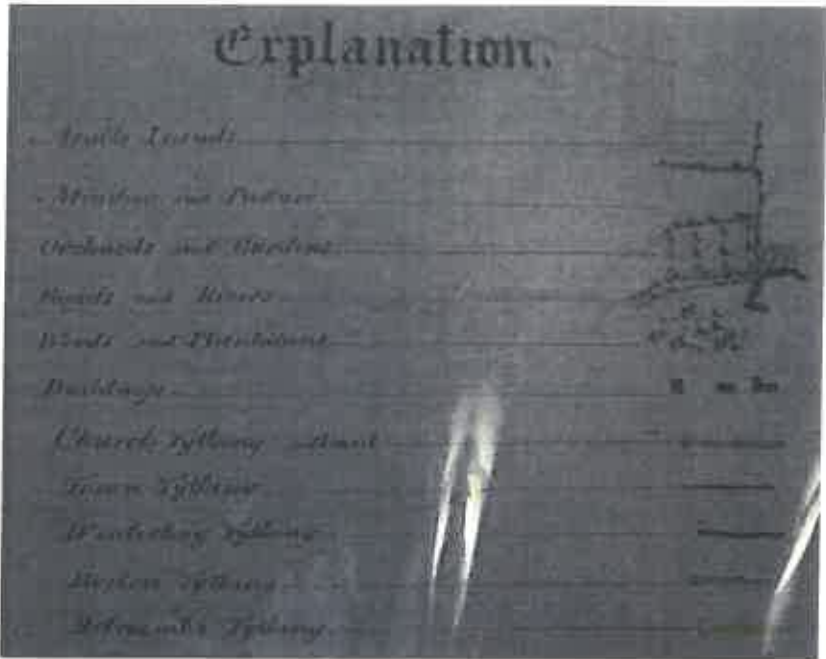 Explanation.
Arable Lands
Meadow and Pasture
Orchards and Gardens
Roads and Rivers
Woods and Plantations
Buildings
Church Tything
Town Tything
Tything
Weston Tything
Tything